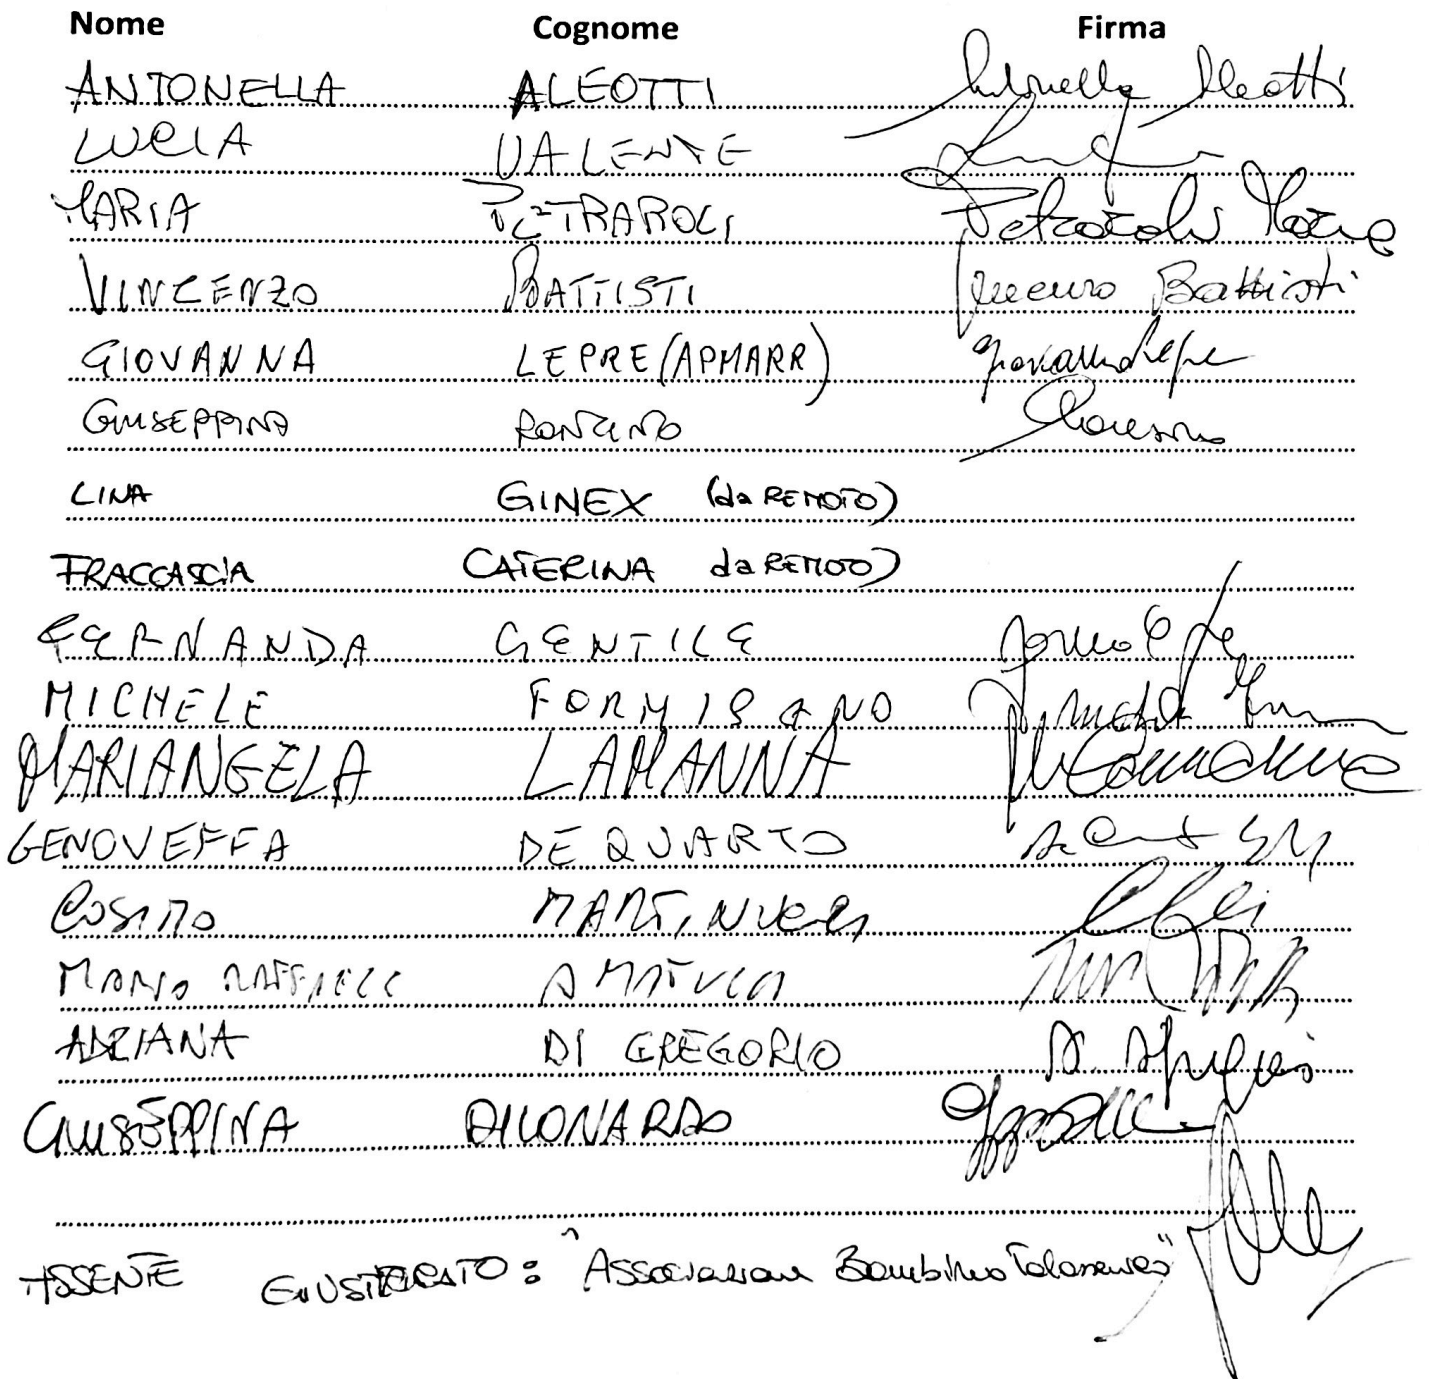 Nome Cognome Firma
ANTONELLA ALEOTTI Antonella Aleotti
LUCIA VALENTE
MARIA PETRAROLI Petraroli Maria
VINCENZO BATTISTI Vincenzo Battisti
GIOVANNA LEPRE (APMARR) Giovanna Lepre
GIUSEPPINA RONZINO
LINA GINEX (da REMOTO)
FRACCASCIA CATERINA da REMOTO)
FERNANDA GENTILE
MICHELE FORMISANO
MARIANGELA LAMANNA
GENOVEFFA DE QUARTO
COSIMO MARTINUCCI
MARIO RAFFAELE AMATUCCI
ADRIANA DI GREGORIO
GIUSEPPINA DILONARDO
ASSENTE GIUSTIFICATO: "Associazione Bambino